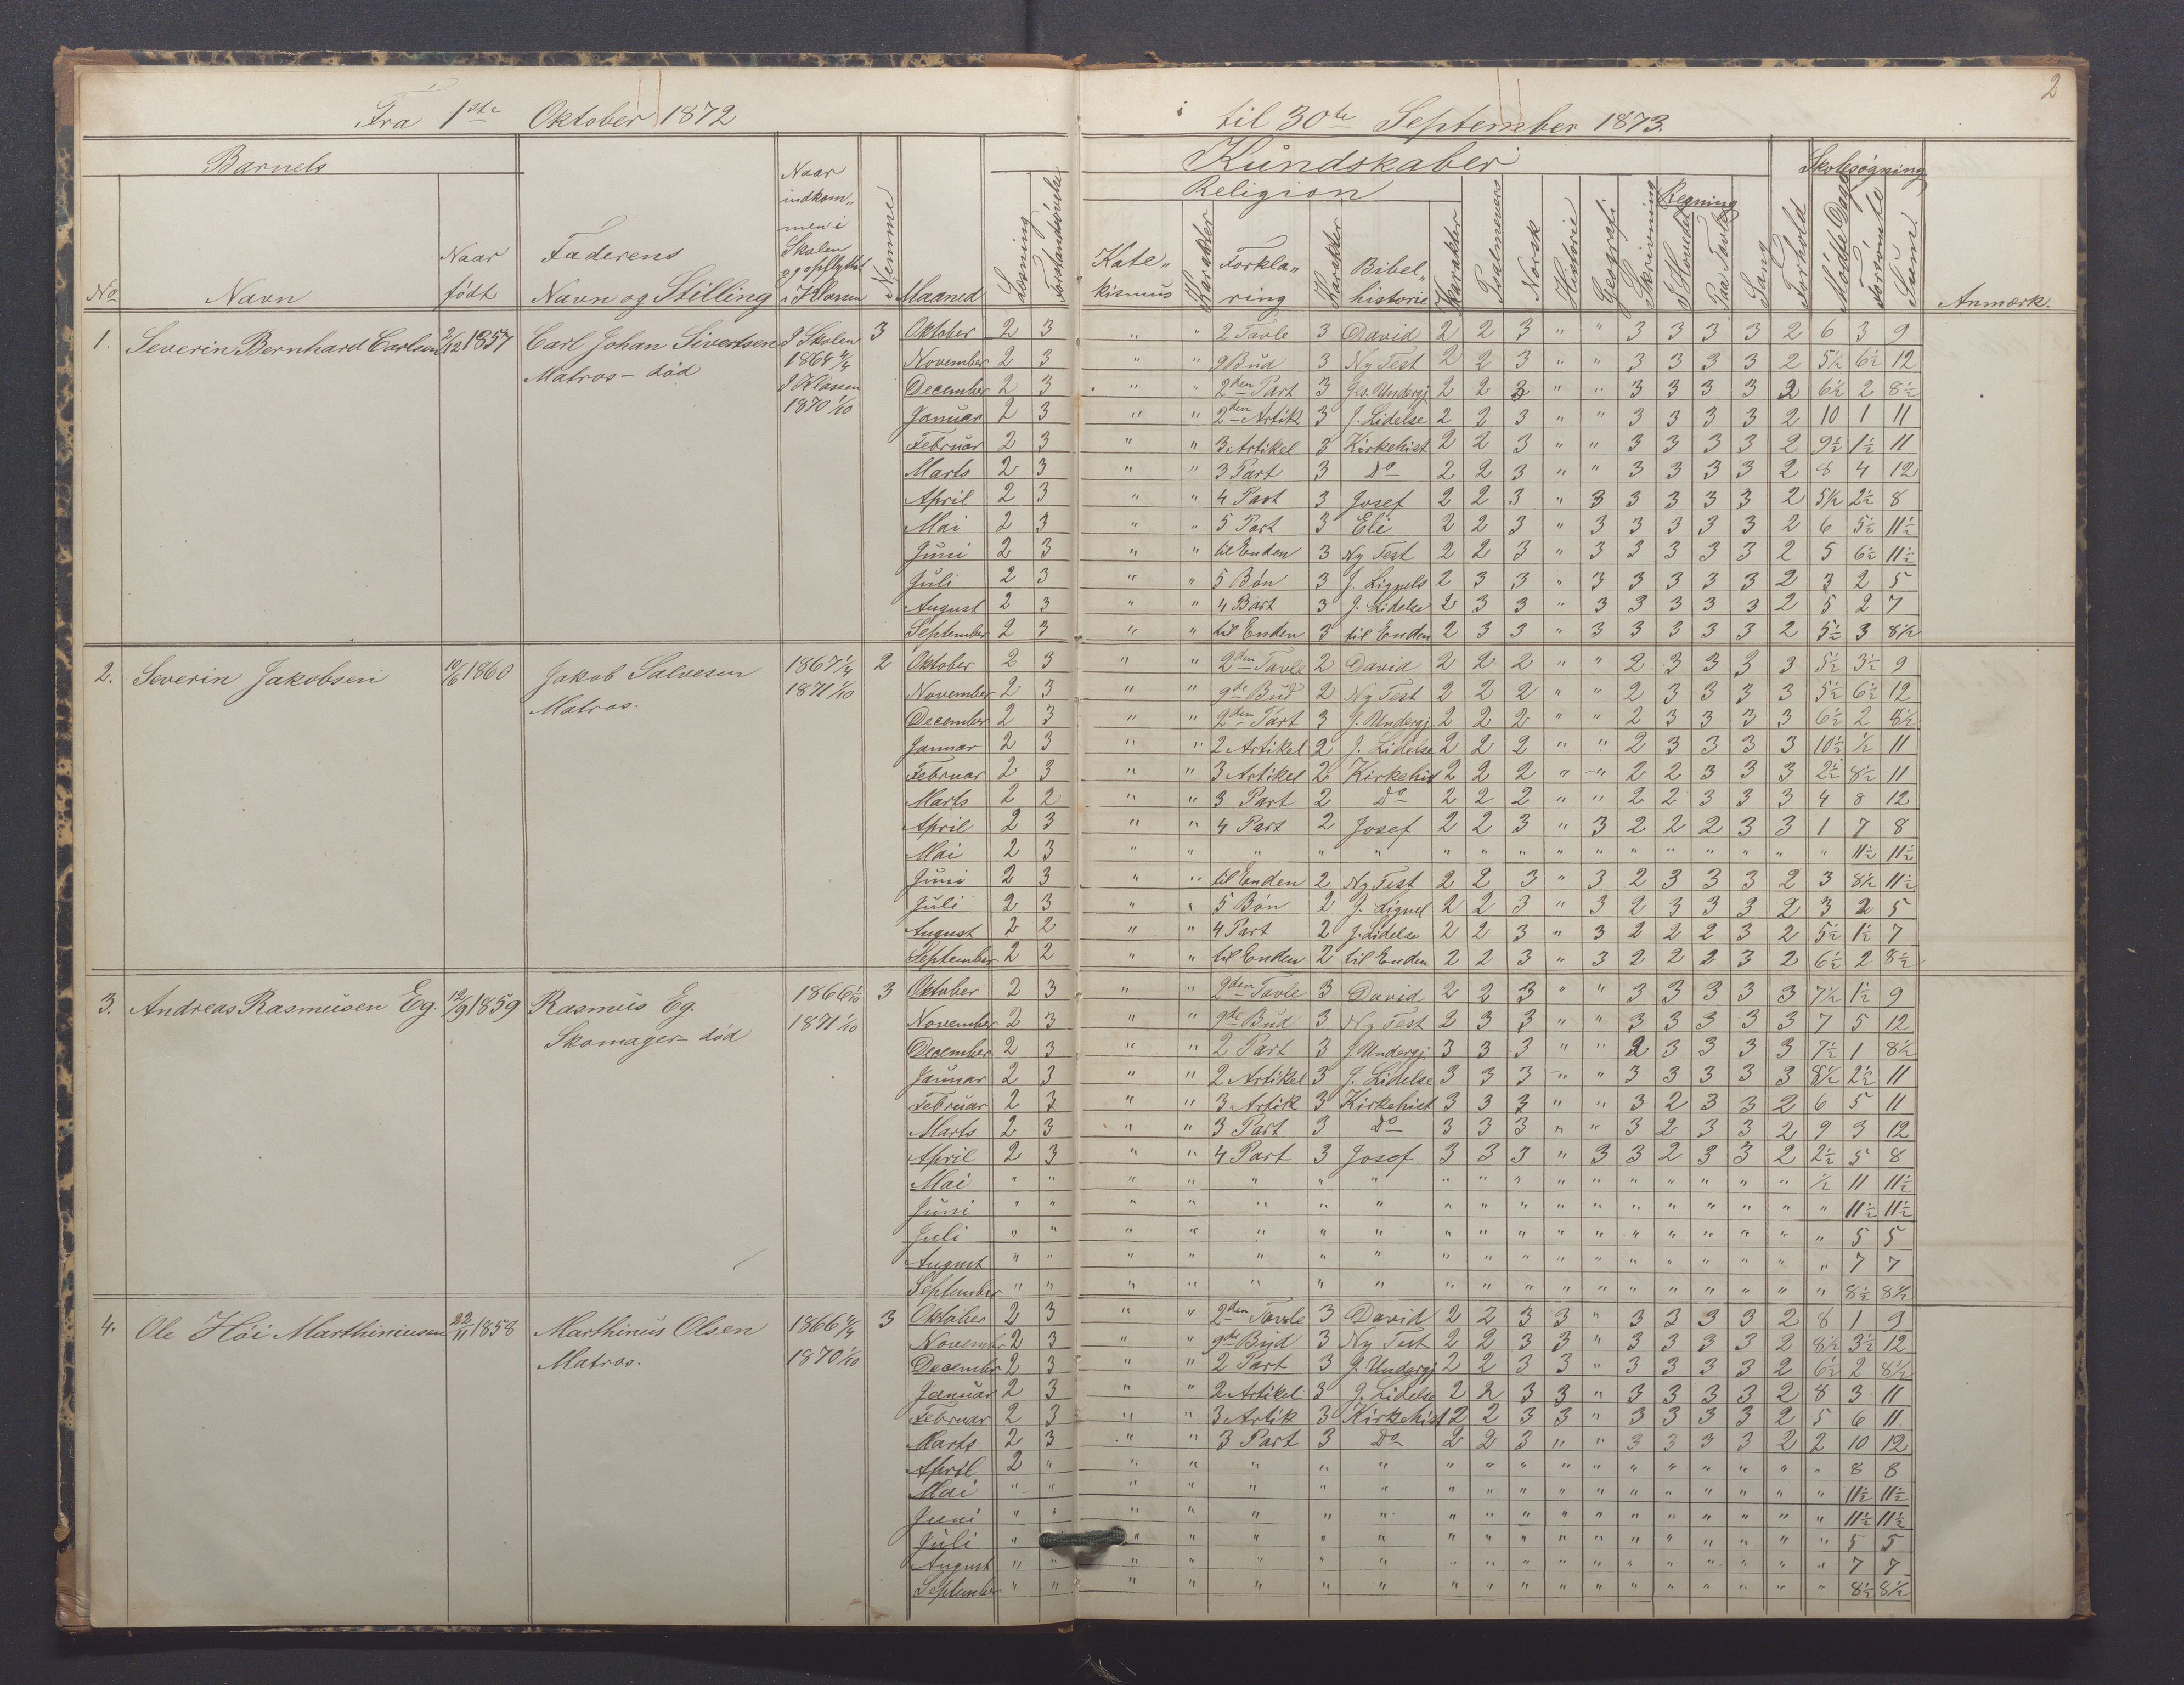 2
Fra 1ste Oktober 1872 til 30te September 1873.
Barnets
Kundskaber
Skolesøgning
Religion
Regning
No Navn Naar født Faderens Navn og Stilling Naar indkom„ men i Skolen og opflyttet i Klassen Nemme Maaned Læsning Forstandsøvelse Kate„ kismus Karakter Forkla„ ring Karakter Bibel„ historie Karakter Psalmevers Norsk Historie Geografi Skrivning I Hovedet Paa Tavle Sang Forhold Mødte Dage Forsömte Sum Anmærk.
1. Severin Bernhard Carlsen 2/12 1857 Carl Johan Sivertsen I Skolen 3 Oktober 2 3 „ „ 2 Tavle 3 David 2 2 3 „ „ 3 3 3 3 2 6 3 9
Matros - död 1864 I Klassen 1870 1/10
November 2 3 „ „ 9 Bud 3 Ny Test 2 2 3 „ „ 3 3 3 3 2 5½ 6½ 12
December 2 3 „ „ 2den Part 3 Jes. Undergj 2 2 3 „ „ 3 3 3 3 2 6½ 2 8½
Januar 2 3 „ „ 2den Artik 3 J. Lidelse 2 2 3 „ „ 3 3 3 3 2 10 1 11
Februar 2 3 „ „ 3 Artikel 3 Kirkehist 2 2 3 „ „ 3 3 3 3 2 9½ 1½ 11
Marts 2 3 „ „ 3 Part 3 Do 2 2 3 „ „ 3 3 3 3 2 8 4 12
April 2 3 „ „ 4 Part 3 Josef 2 2 3 „ 3 3 3 3 3 2 5½ 2½ 8
Mai 2 3 „ „ 5 Part 3 Eli 2 2 3 „ 3 3 3 3 3 2 6 5½ 11½
Juni 2 3 „ „ til Enden 3 Ny Test 2 2 3 „ 3 3 3 3 3 2 5 6½ 11½
Juli 2 3 „ „ 5 Bön 3 J. Lignels 2 3 3 „ 3 3 3 3 3 2 3 2 5
August 2 3 „ „ 4 Part 3 J. Lidelse 2 3 3 „ 3 3 3 3 3 2 5 2 7
September 2 3 „ „ til Enden 3 til Enden 2 3 3 „ 3 3 3 3 3 2 5½ 3 8½
2. Severin Jakobsen 10/6 1860 Jakob Salvesen 1867 1/4 2 Oktober 2 3 „ „ 2den Tavle 2 David 2 2 2 „ „ 2 3 3 3 3 5½ 3½ 9
Matros. 1871 1/10 November 2 3 „ „ 9de Bud 2 Ny Test 2 2 2 „ „ 2 3 3 3 3 5½ 6½ 12
December 2 3 „ „ 2den Part 3 J. Undergj 2 2 2 „ „ 2 3 3 3 3 6½ 2 8½
Januar 2 3 „ „ 2 Artikel 2 J. Lidelse 2 2 2 „ „ 2 3 3 3 3 10½ ½ 11
Februar 2 3 „ „ 3 Artikel 2 Kirkehist 2 2 2 „ „ 2 2 3 3 3 2½ 8½ 11
Marts 2 2 „ „ 3 Part 2 Do 2 2 2 „ „ 2 2 3 3 3 4 8 12
April 2 3 „ „ 4 Part 2 Josef 2 2 3 „ 3 2 2 2 3 3 1 7 8
Mai 2 3 „ „ „ „ „ „ „ „ „ „ „ „ „ „ „ „ 11½ 11½
Juni 2 3 „ „ til Enden 2 Ny Test 2 2 3 „ 3 2 3 3 3 2 3 8½ 11½
Juli 2 3 „ „ 5 Bön 2 J. Lignel 2 2 3 „ 3 2 3 3 3 2 3 2 5
August 2 2 „ „ 4 Part 2 J. Lidelse 2 2 3 „ 3 2 2 2 3 2 5½ 1½ 7
September 2 2 „ „ til Enden 2 til Enden 2 2 3 „ 3 2 2 2 3 2 6½ 2 8½
3. Andreas Rasmusen Eg. 12/9 1859 Rasmus Eg. 1866 1/10 3 Oktober 2 3 „ „ 2den Tavle 3 David 2 2 3 „ „ 3 3 3 3 3 7½ 1½ 9
Skomager - död 1871 1/10 November 2 3 „ „ 9de Bud 3 Ny Test 2 3 3 „ „ 3 3 3 3 3 7 5 12
December 2 3 „ „ 2 Part 3 J. Undergj. 3 3 3 „ „ 2 3 3 3 3 7½ 1 8½
Januar 2 3 „ „ 2 Artikel 3 J. Lidelse 3 3 3 „ „ 3 3 3 3 3 8½ 2½ 11
Februar 2 3 „ „ 3 Artik 3 Kirkehist 3 3 3 „ „ 3 2 3 3 2 6 5 11
Marts 2 3 „ „ 3 Part 3 Do 3 3 3 „ „ 3 2 3 3 2 9 3 12
April 2 3 „ „ 4 Part 3 Josef 3 3 3 „ 3 3 2 3 3 2 2½ 5 8
Mai „ „ „ „ „ „ „ „ „ „ „ „ „ „ „ „ „ „ ½ 11 11½
Juni „ „ „ „ „ „ „ „ „ „ „ „ „ „ „ „ „ „ „ 11½ 11½
Juli „ „ „ „ „ „ „ „ „ „ „ „ „ „ „ „ „ „ „ 5 5
August „ „ „ „ „ „ „ „ „ „ „ „ „ „ „ „ „ „ „ 7 7
September „ „ „ „ „ „ „ „ „ „ „ „ „ „ „ „ „ „ „ 8½ 8½
4. Ole Höi Marthiniusen 22/11 1858 Marthinus Olsen 1866 3 Oktober 2 3 „ „ 2den Tavle 3 David 2 2 3 3 „ 3 3 3 3 2 8 1 9
Matros. 1870 1/10 November 2 3 „ „ 9de Bud 3 Ny Test 2 2 3 3 „ 3 3 3 3 2 8½ 3½ 12
December 2 3 „ „ 2 Part 3 J. Undergj 2 2 3 3 „ 3 3 3 3 2 6½ 2 8½
Januar 2 3 „ „ 2 Artikel 3 J. Lidelse 2 2 3 3 „ 3 3 3 3 2 8 3 11
Februar 2 3 „ „ 3 Artik 3 Kirkehist 2 2 3 3 „ 3 3 3 3 2 5 6 11
Marts 2 3 „ „ 3 Part 3 Do 2 2 3 „ „ 3 3 3 3 2 2 10 12
April 2 „ „ „ „ „ „ „ „ „ „ „ „ „ „ „ „ „ „ 8 8
Mai „ „ „ „ „ „ „ „ „ „ „ „ „ „ „ „ „ „ „ 11½ 11½
Juni „ „ „ „ „ „ „ „ „ „ „ „ „ „ „ „ „ „ „ 11½ 11½
Juli „ „ „ „ „ „ „ „ „ „ „ „ „ „ „ „ „ „ 5 5
August „ „ „ „ „ „ „ „ „ „ „ „ „ „ „ „ „ „ „ 7 7
September „ „ „ „ „ „ „ „ „ „ „ „ „ „ „ „ „ „ „ 8½ 8½